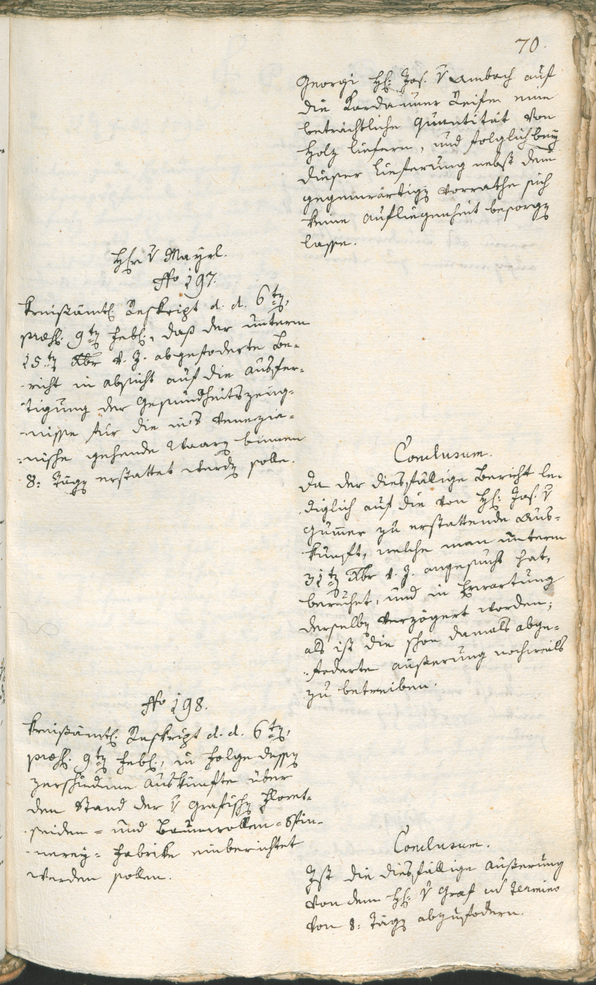 70.
Georgi H: Jos. v Ambach auf
die Kardauner Reifen eine
beträchtliche Quantität von
Holz liefern, und folglich bey
dieser Lieferung nebst dem
gegenwärtigen Vorrathe sich
keine Aufliegenheit besorgen
lasse.
Hr: v Mayrl.
No 197.
Kreisämtl. Reskript d. d. 6ten,
praes. 9ten Febr., daß der unterm
15ten Xbr v. J. abgeforderte Be-
richt in Absicht auf die Ausfer-
tigung der Gesundheitszeug-
nisse für die ins Venezia-
nische gehende Waaren binnen
8: Tägen erstattet werden solle.
Conclusum.
Da der diesfällige Bericht le-
diglich auf die von H: Jos. v
Gumer zu erstattende Aus-
kunft, welche man unterm
31ten Xbr v. J. angesucht hat,
beruhet, und in Erwartung
derselben verzögert worden;
als ist die schon damals abge-
foderte Äußerung nochmals
zu betreiben.
No 198.
Kreisämtl. Reskript d. d. 6ten,
praes. 9ten Febr., in Folge dessen
zerschiedene Auskünfte über
den Stand der v Grafischen Floret-
seiden- und Baumwollen-Spin-
nerey-Fabrike einberichtet
werden sollen.
Conclusum.
Ist die diesfällige Äußerung
von dem H: v Graf in Termino
von 8: Tägen abzufodern.